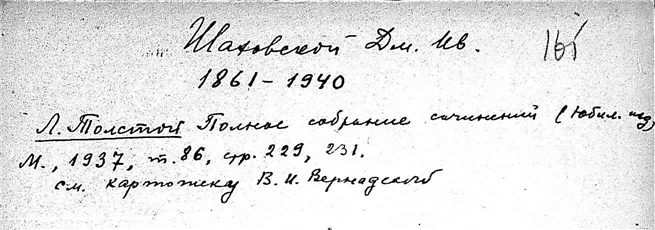 Шаховской Дм. Ив. 165
1861-1940
Л. Толстой Полное собрание сочинений (Юбил. изд)
М., 1937, т. 86, стр. 229, 231.
см. картотеку В. И. Вернадской